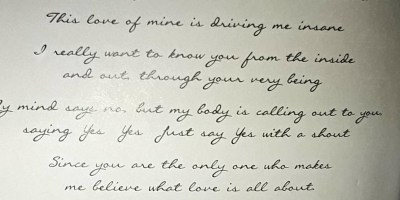 This love of mine is driving me insane
I really want to know you from the inside
and out, through your very being
y mind says no, but my body is calling out to you,
saying Yes Yes Just say Yes with a shout
Since you are the only one who makes
me believe what love is all about.